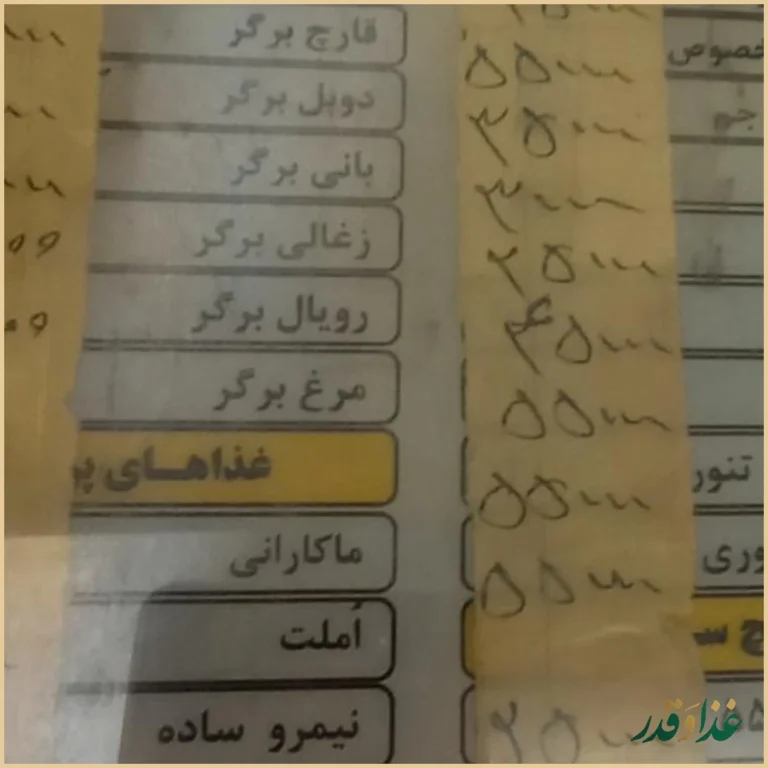 خصوص
قارچ برگر
۵۵۰۰۰
دوبل برگر
۳۵۰۰۰
بانی برگر
۳۰۰۰۰
زغالی برگر
۲۵۰۰۰
رویال برگر
مرغ برگر
۵۵۰۰۰
تنور
غذاهای پر
۵۵۰۰۰
وری
ماکارانی
۵۵۰۰۰
اُملت
نیمرو ساده
۲۵۰۰۰
غذا و قدر